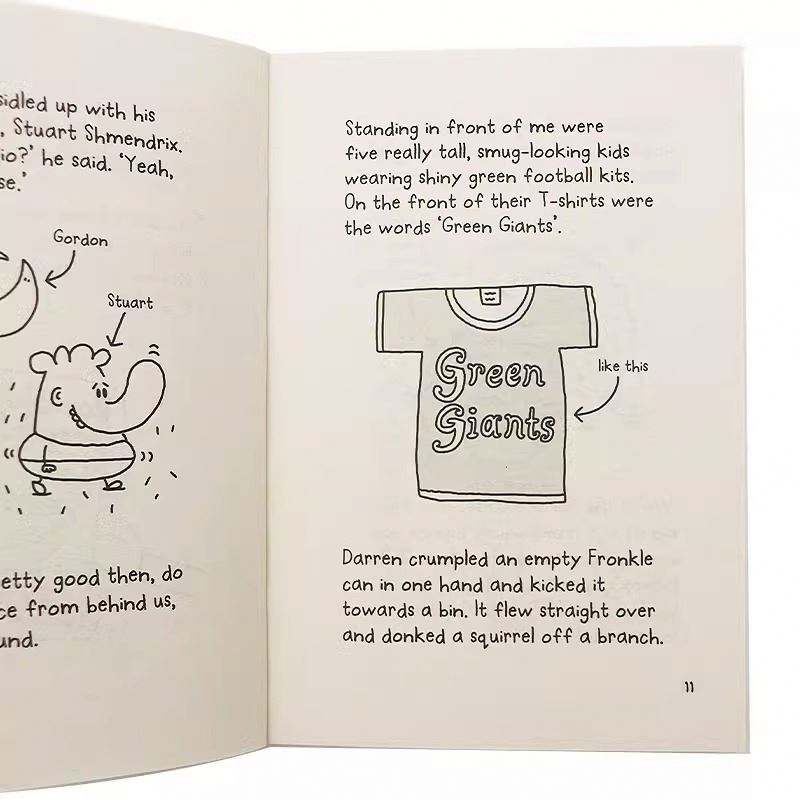 sidled up with his
, Stuart Shmendrix.
io?’ he said. ‘Yeah,
se.’
Gordon
Stuart
etty good then, do
ce from behind us,
und.
Standing in front of me were
five really tall, smug-looking kids
wearing shiny green football kits.
On the front of their T-shirts were
the words ‘Green Giants’.
Green
Giants
like this
Darren crumpled an empty Fronkle
can in one hand and kicked it
towards a bin. It flew straight over
and donked a squirrel off a branch.
11